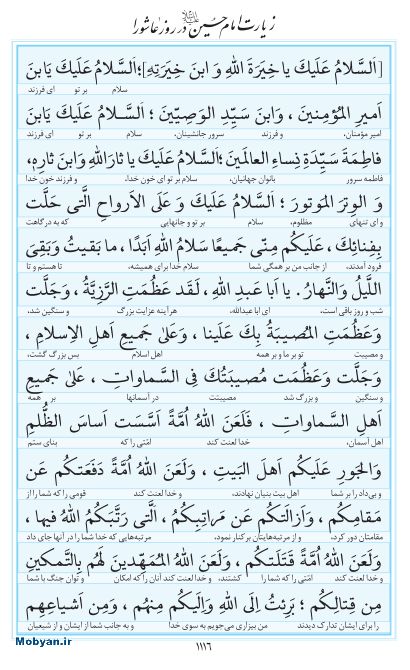 زیارت امام حسین علیه‌السلام در روز عاشورا
[اَلسَّلامُ عَلَیكَ یا خِیَرَةَ اللّٰهِ وَ ابنَ خِیَرَتِهِ]؛اَلسَّلامُ عَلَیكَ یَابنَ
سلام بر تو ای فرزند
اَمیرِ المُؤمِنینَ ، وَابنَ سَیِّدِ الوَصِیّینَ ؛ اَلسَّلامُ عَلَیكَ یَابنَ
امیر مؤمنان، و فرزند سرور جانشینان، سلام بر تو ای فرزند
فاطِمَةَ سَیِّدَةِ نِساءِ العالَمینَ؛اَلسَّلامُ عَلَیكَ یا ثارَاللّٰهِ وَابنَ ثارِهِ،
فاطمه سرور بانوان جهانیان، سلام بر تو ای خون خدا، و فرزند خون خدا
وَ الوِترَ المَوتورَ ؛ اَلسَّلامُ عَلَیكَ وَ عَلَی الاَرواحِ الَّتی حَلَّت
و ای تنهای مظلوم، سلام بر تو و جانهایی که به درگاهت
بِفِنائِكَ ، عَلَیکُم مِنّی جَمیعًا سَلامُ اللّٰهِ اَبَدًا ، ما بَقیتُ وَبَقِیَ
فرود آمدند، از جانب من بر همگی شما سلام خدا برای همیشه، تا هستم و تا
اللَّیلُ وَالنَّهارُ. یا اَبا عَبدِ اللّٰهِ، لَقَد عَظُمَتِ الرَّزِیَّةُ ، وَجَلَّت
شب و روز باقی است، ای اباعبدالله، هر آینه عزایت بزرگ و سنگین شد،
وَعَظُمَتِ المُصیبَةُ بِكَ عَلَینا ، وَعَلیٰ جَمیعِ اَهلِ الاِسلامِ ،
و مصیبت تو بر ما و بر همه اهل اسلام بس بزرگ گشت،
وَجَلَّت وَعَظُمَت مُصیبَتُكَ فِی السَّماواتِ ، عَلیٰ جَمیعِ
و سنگین و بزرگ شد مصیبتت در آسمانها بر همه
اَهلِ السَّماواتِ ، فَلَعَنَ اللّٰهُ اُمَّةً اَسَّسَت اَساسَ الظُّلمِ
اهل آسمان، خدا لعنت کند امّتی را که بنای ستم
وَالجَورِ عَلَیکُم اَهلَ البَیتِ ، وَلَعَنَ اللّٰهُ اُمَّةً دَفَعَتکُم عَن
و بی‌داد را بر شما اهل بیت بنیان نهادند، و خدا لعنت کند قومی را که شما را از
مَقامِکُم ، وَاَزالَتکُم عَن مَراتِبِکُمُ ، الَّتی رَتَّبَکُمُ اللّٰهُ فیها ،
مقامتان دور کرد، و از مرتبه‌هایتان بر کنار نمود، مرتبه‌هایی که خدا شما را در آنها جای داد
وَلَعَنَ اللّٰهُ اُمَّةً قَتَلَتکُم ، وَلَعَنَ اللّٰهُ المُمَهِّدینَ لَهُم بِالتَّمکینِ
و خدا لعنت کند امّتی را که شما را کشتند، و خدا لعنت کند آنان را که امکان و توان جنگ با شما
مِن قِتالِکُم ؛ بَرِئتُ اِلَی اللّٰهِ وَاِلَیکُم مِنهُم ، وَمِن اَشیاعِهِم
را برای ایشان تدارک دیدند من بیزاری می‌جویم به سوی خدا و به جانب شما از ایشان و از شیعیان
۱۱۱۶
Mobyan.ir